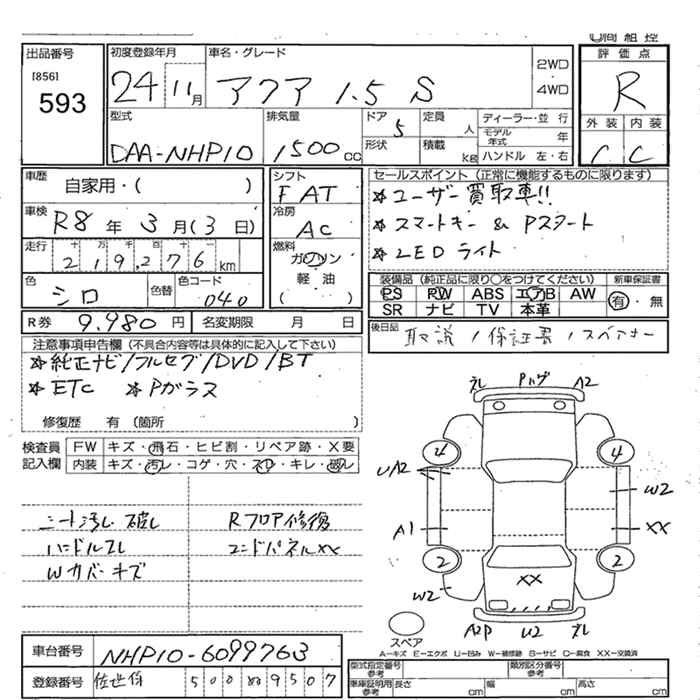 出品番号
[856]
593
初度登録年月
24 11月
車名・グレード
アクア 1.5 S
2WD
4WD
評価点
R
外装 内装
C C
型式
DAA-NHP10
排気量
1500cc
ドア
5
形状
定員
人
積載
kg
ディーラー・並行
モデル年式 年
ハンドル 左・右
車歴
自家用・( )
車検
R8年 3月(3日)
走行
十万千百十
219,276km
色
シロ
色替
色コード
040
シフト
FAT
冷房
AC
燃料
ガソリン
軽油
( )
セールスポイント (正常に機能するものに限ります)
☆ユーザー買取車!!
☆スマートキー & Pスタート
☆LED ライト
装備品(純正品に限り○をつけてください)
PS PW ABS エアB AW
SR ナビ TV 本革
新車保証書
有・無
後日品
取説/保証書/スペアキー
R券 9.980円
名変期限 月 日
注意事項申告欄(不具合内容等は具体的に記入して下さい)
☆純正ナビ/フルセグ/DVD/BT
☆ETC ☆Pガラス
修復歴 有(箇所 )
検査員記入欄
FW キズ・飛石・ヒビ割・リペア跡・X要
内装 キズ・汚レ・コゲ・穴・スレ・キレ・破レ
シート汚レ 破レ
ハンドルスレ
Wカバーキズ
Rフロア修復
エンドパネルXX
ズレ Pハゲ A2
4 4
UA2
W2
A1
XX
2 2
W2
XX
A2P U2 ズレ
スペア
A-キズ E-エクボ U-凹み W-補修跡 S-サビ C-腐食 XX-交換済
車台番号
NHP10-6099763
登録番号
佐世保 500 9507
型式指定番号 参考
類別区分番号 参考
車庫証明用 参考
長さ cm
幅 cm
高さ cm